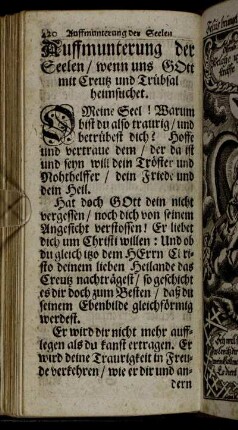 420 Auffmunterung der Seelen
Auffmunterung der
Seelen / wenn uns GOtt
mit Creutz und Trübsal
heimsuchet.
O Meine Seel! Warum
bist du also traurig / und
betrübest dich? Hoffe
und vertraue dem / der da ist
und seyn will dein Tröster und
Nohthelffer / dein Friede und
dein Heil.
Hat doch GOtt dein nicht
vergessen / noch dich von seinem
Angesicht verstossen! Er liebet
dich um Christi willen: Und ob
du gleich itzo dem HErrn Chri-
sto deinem lieben Heilande das
Creutz nachträgest / so geschicht
es dir doch zum Besten / daß du
seinem Ebenbilde gleichförmig
werdest.
Er wird dir nicht mehr auff-
legen als du kanst ertragen. Er
wird deine Traurigkeit in Freu-
de verkehren / wie er dir und an-
dern